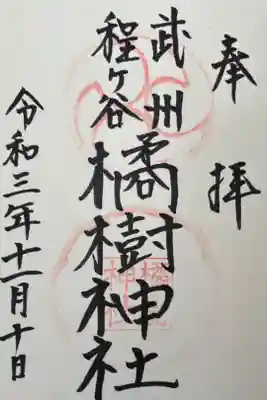 奉拝
武州
程ヶ谷
橘樹神社
令和三年十一月十日